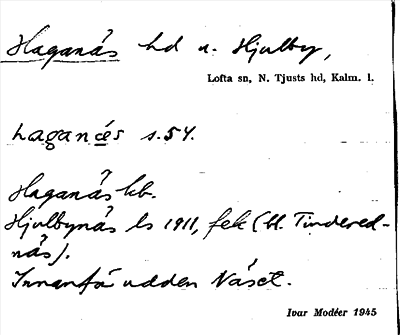 Haganäs hd u. Hjulby,
Lofta sn, N. Tjusts hd, Kalm. l.
haganę̀s s. 54.
Haganäs kb.
Hjulbynäs ls 1911, fek (bl. Tindered-
näs).
Innanför udden Näset.
Ivar Modéer 1945